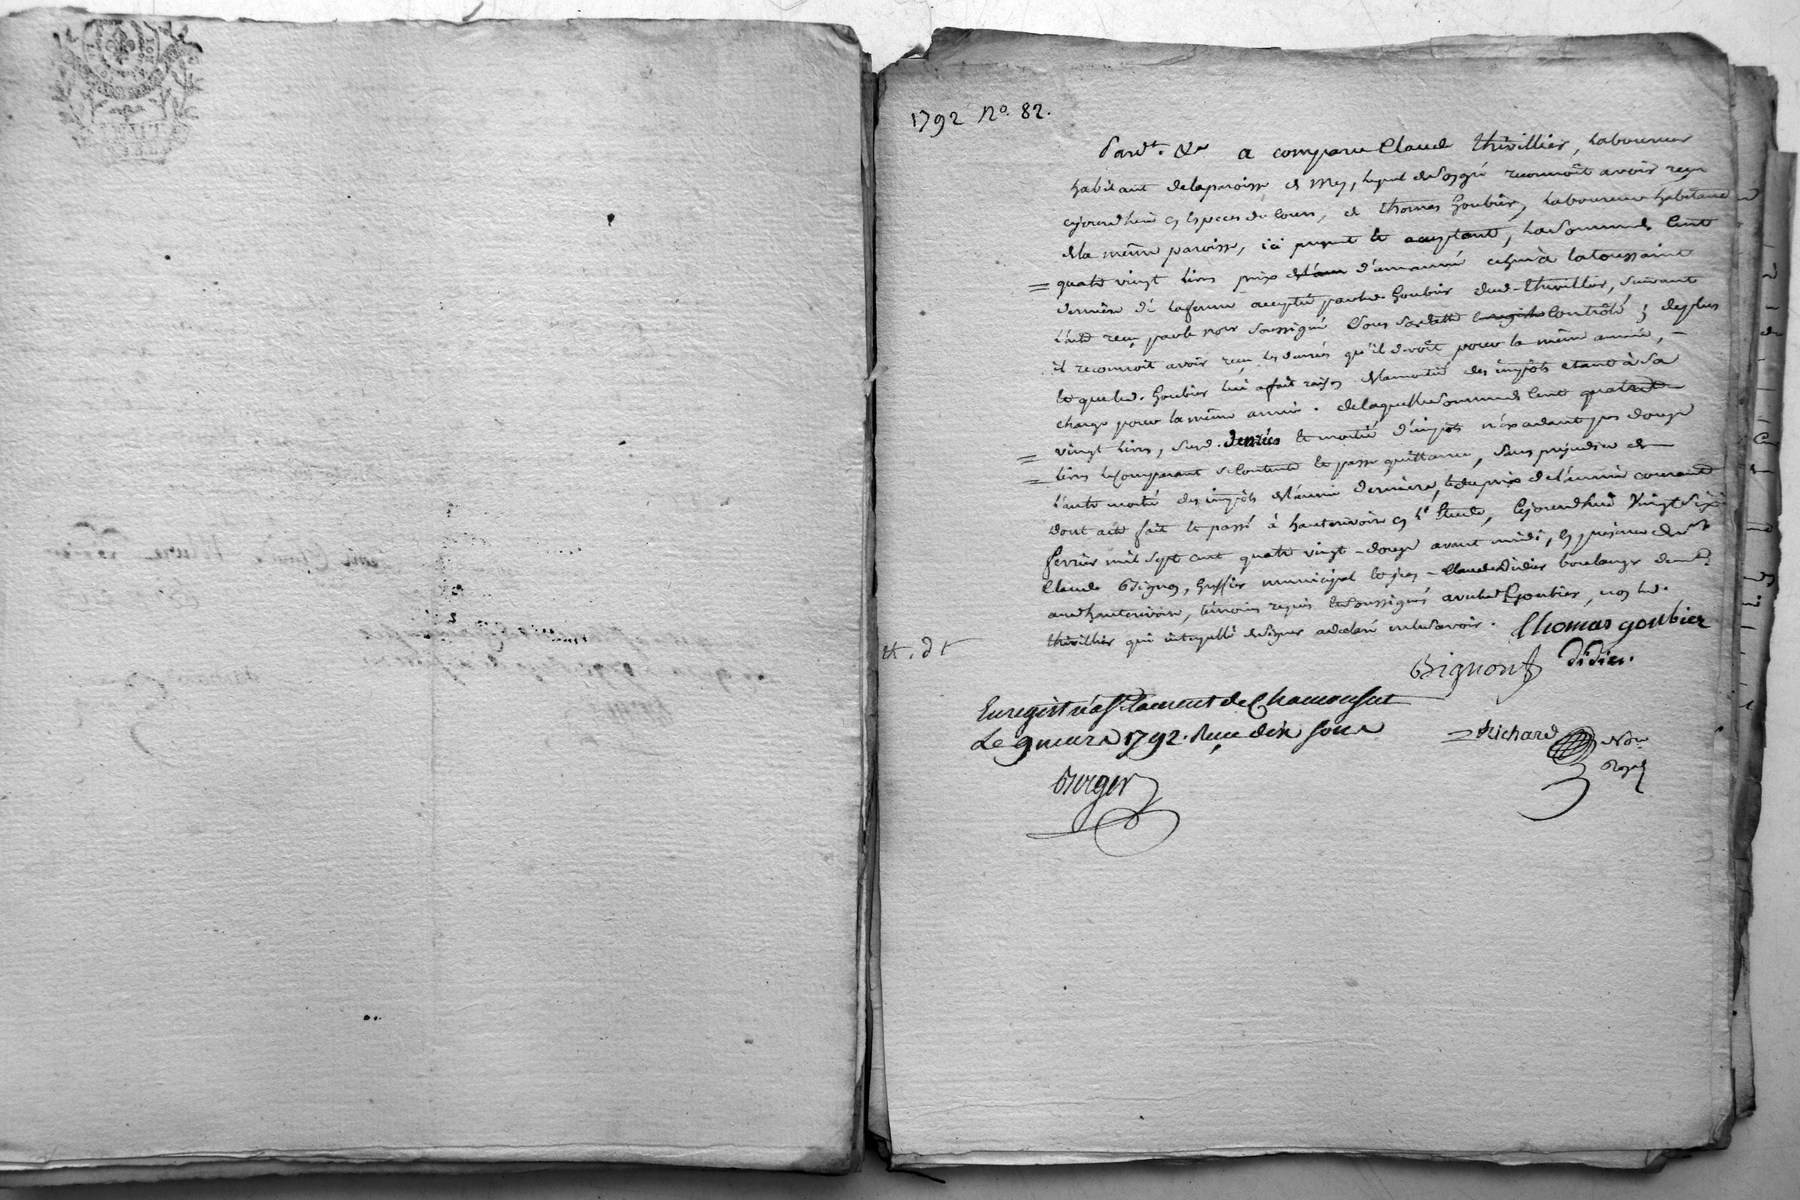 1792 No. 82.
Pardt. &a a comparu Claude thivillier, Laboureur
habitant de la paroisse de Mey, lequel de son gré reconnoît avoir reçu
cejourdhui en Especes de cours, de thomas Goubier, Laboureur habitant
de la même paroisse, ici present et acceptant, La Somme de Cent
quatre vingt Livres prix d'une année echue à la toussaint
derniere de la ferme acceptée par led. Goubier dud. thivillier, suivant
l'acte reçu par le nore soussigné Controlé ; de plus
il reconnoit avoir reçu les denrées qu'il devoit pour la même année, —
lequel led. Goubier lui a fait raison de la moitié des impôts etant à sa
charge pour la même année. de laquelle Somme de Cent quatre
vingt Livres, Susd. denrées et moitié d'impôts n'éxcedant pas douze
Livres le Comparant se Contente et passe quittance, Sans prejudice de
l'autre moitié des impôts de l'année derniere, et du prix de l'année courante
dont acte fait et passé à hauterivoire en l'Etude, Cejourdhui Vingt Six
fevrier mil sept cent quatre vingt-douze avant midi, En presence de
Claude Bignon, Greffier municipal et de jean-Claude Didier boulanger
aud hauterivoire, témoins requis et Soussignés avec led Goubier, non led.
thivillier qui intérpellé de signer a déclaré ne le Savoir. thomas goubier
Bignon didier.
Enregistré à St. Laurent de Chamousset
Le 9 mars 1792. Reçu dix sous
Richard Nore
Royal
Burger